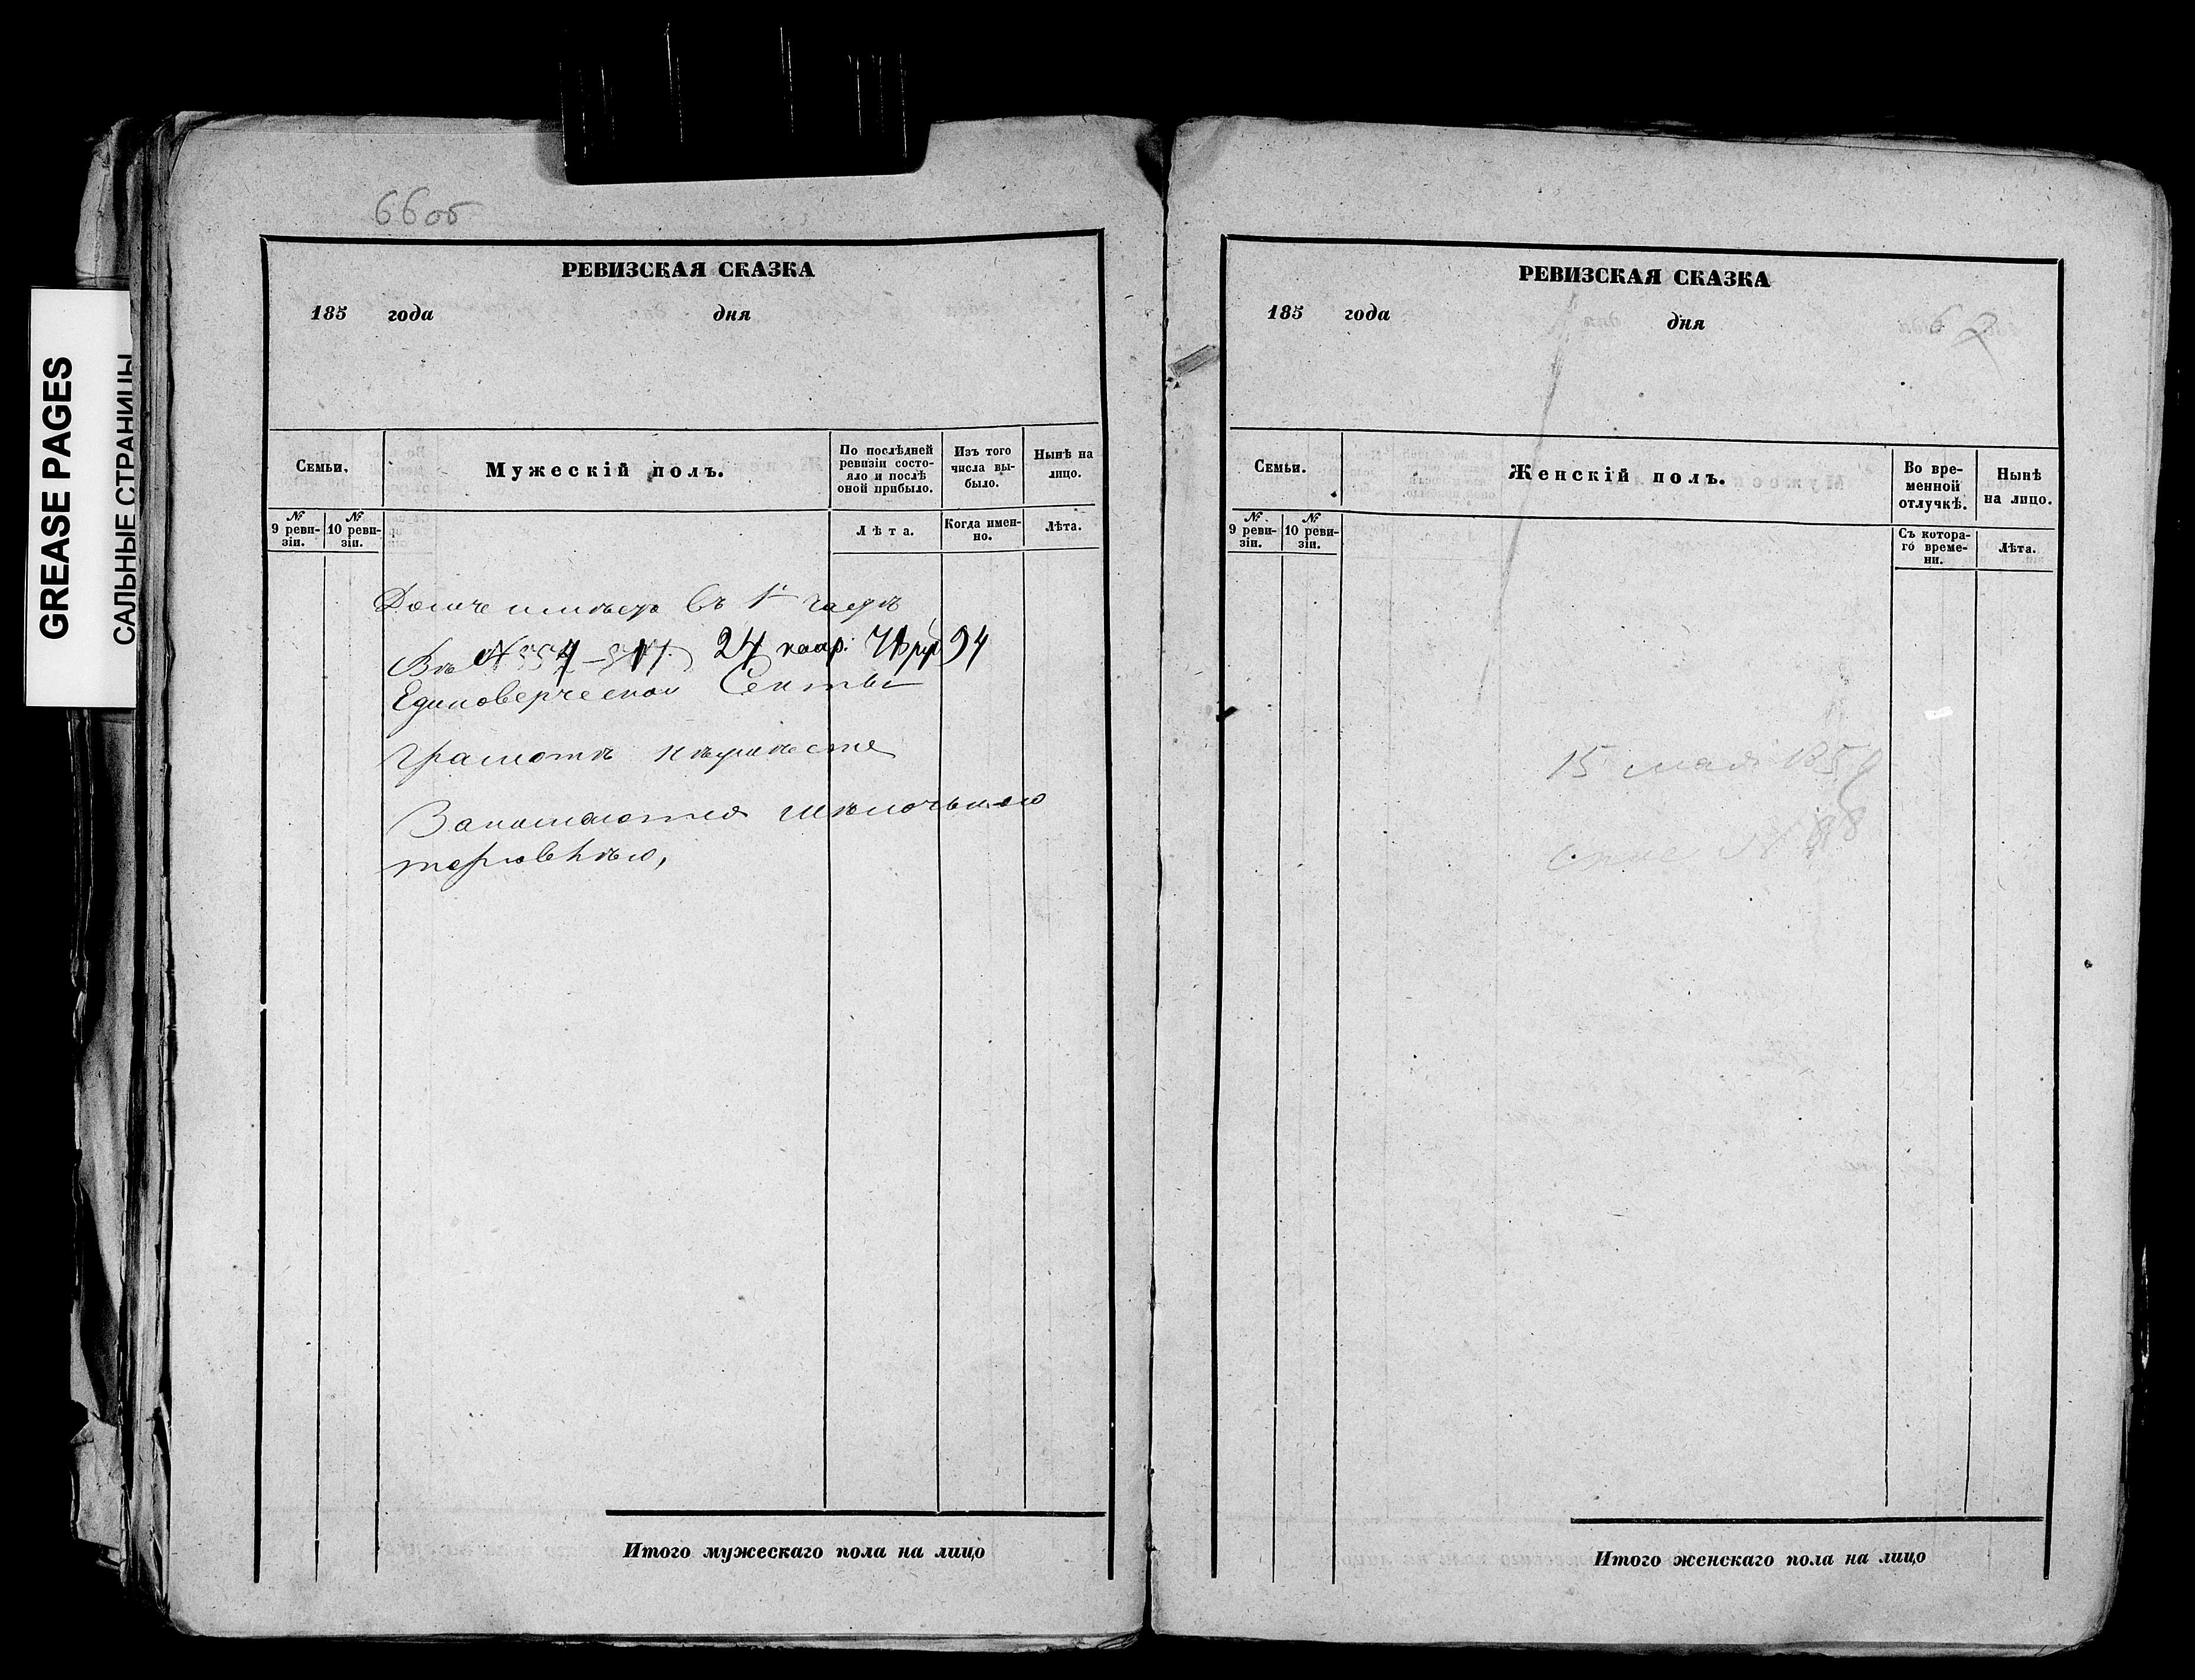 GREASE PAGES
САЛЬНЫЕ СТРАНИЦЫ
66об
РЕВИЗСКАЯ СКАЗКА
185 года дня
Семьи.
Мужескій полъ.
По послѣдней ревизіи состояло и послѣ оной прибыло.
Изъ того числа выбыло.
Нынѣ на лицо.
№ 9 ревизіи.
№ 10 ревизіи.
Лѣта.
Когда именно.
Лѣта.
Домъ имѣетъ въ 1й части
Въ № 24 квар. 94
Единоверческой Секты
Грамотѣ
Занимается мѣлочьною
торговлѣю,
Итого мужескаго пола на лицо
РЕВИЗСКАЯ СКАЗКА
185 года дня
Семьи.
Женскій полъ.
Во временной отлучкѣ.
Нынѣ на лицо.
№ 9 ревизіи.
№ 10 ревизіи.
Съ котораго времени.
Лѣта.
15 мая
Итого женскаго пола на лицо